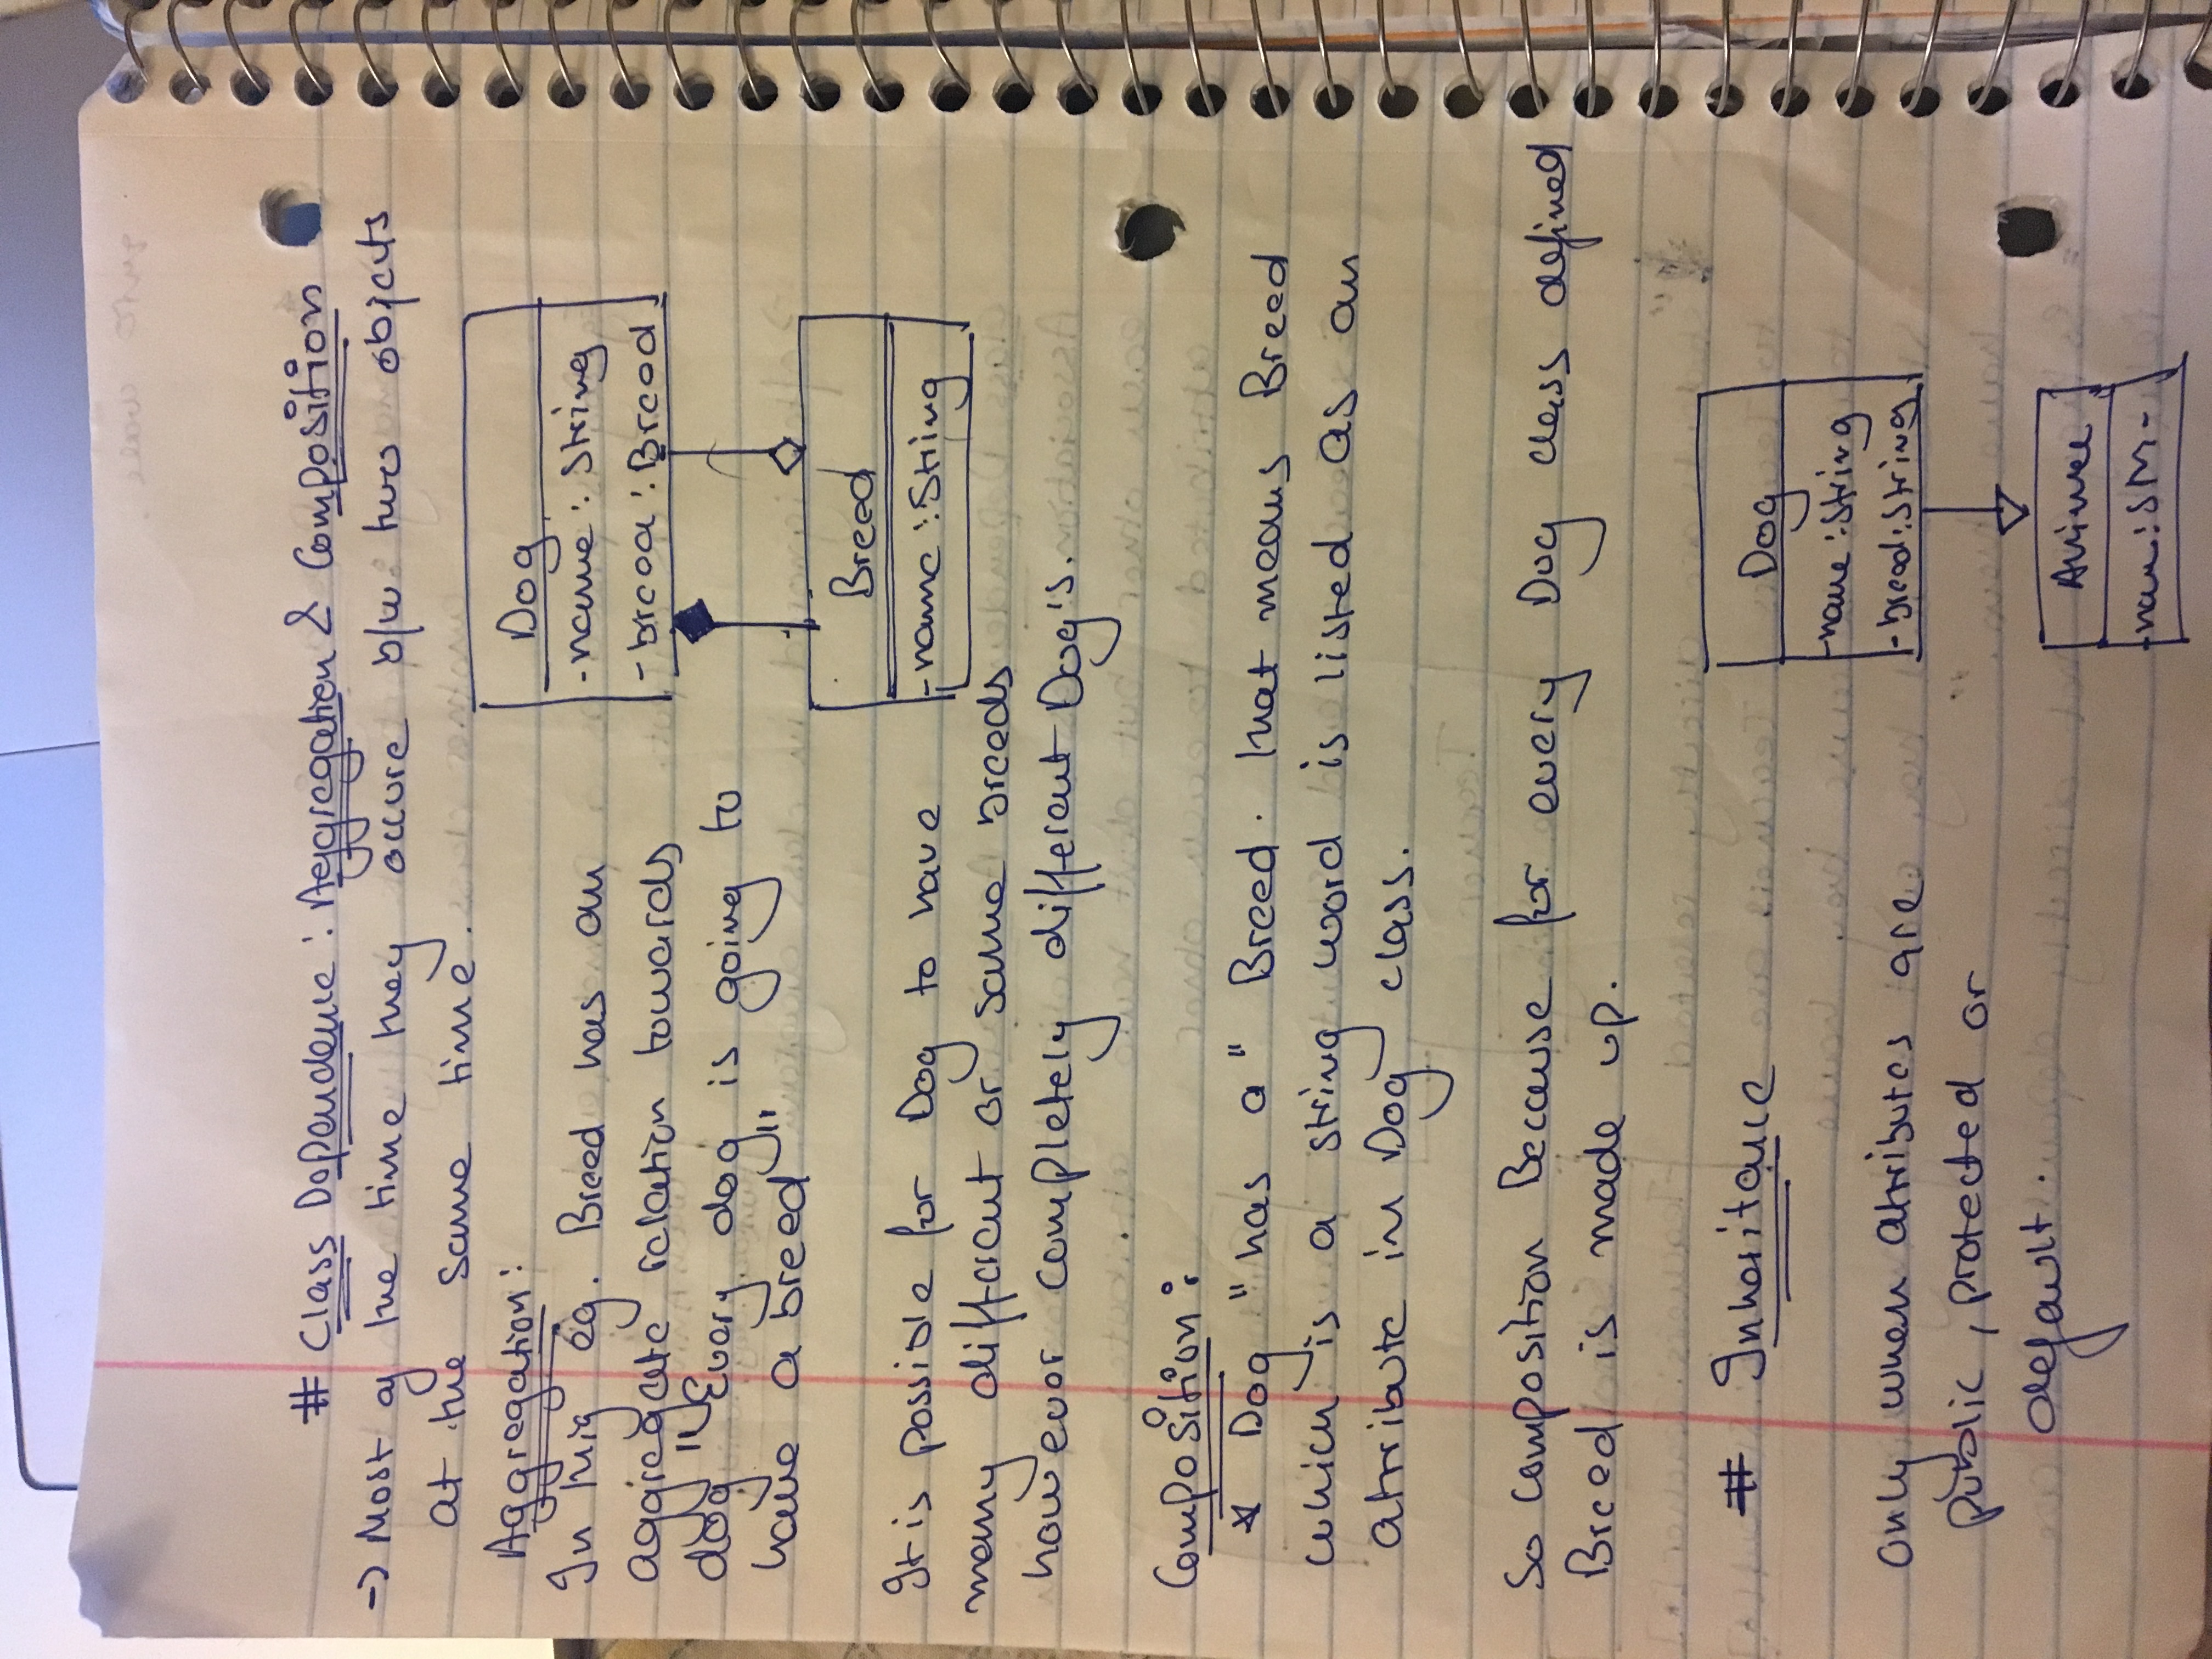 # Class Dependence : Aggregation & Composition
-> Most of the time they occure b/w two objects
at the same time.
Aggregation:
In this eg. Breed has an
aggregate relation towards
dog "Every dog is going to
have a breed"
Dog
-name : String
-breed : Breed
Breed
-name : String
It is possible for Dog to have
many different or same breeds
however completely different Dog's.
Composition:
* Dog "has a" Breed. that means Breed
which is a string word is listed as an
attribute in Dog class.
So composition Because for every Dog class defined
Breed is made up.
# Inheritance
Only when attributes are
public, protected or
default.
Dog
-name : String
-breed : String
Animal